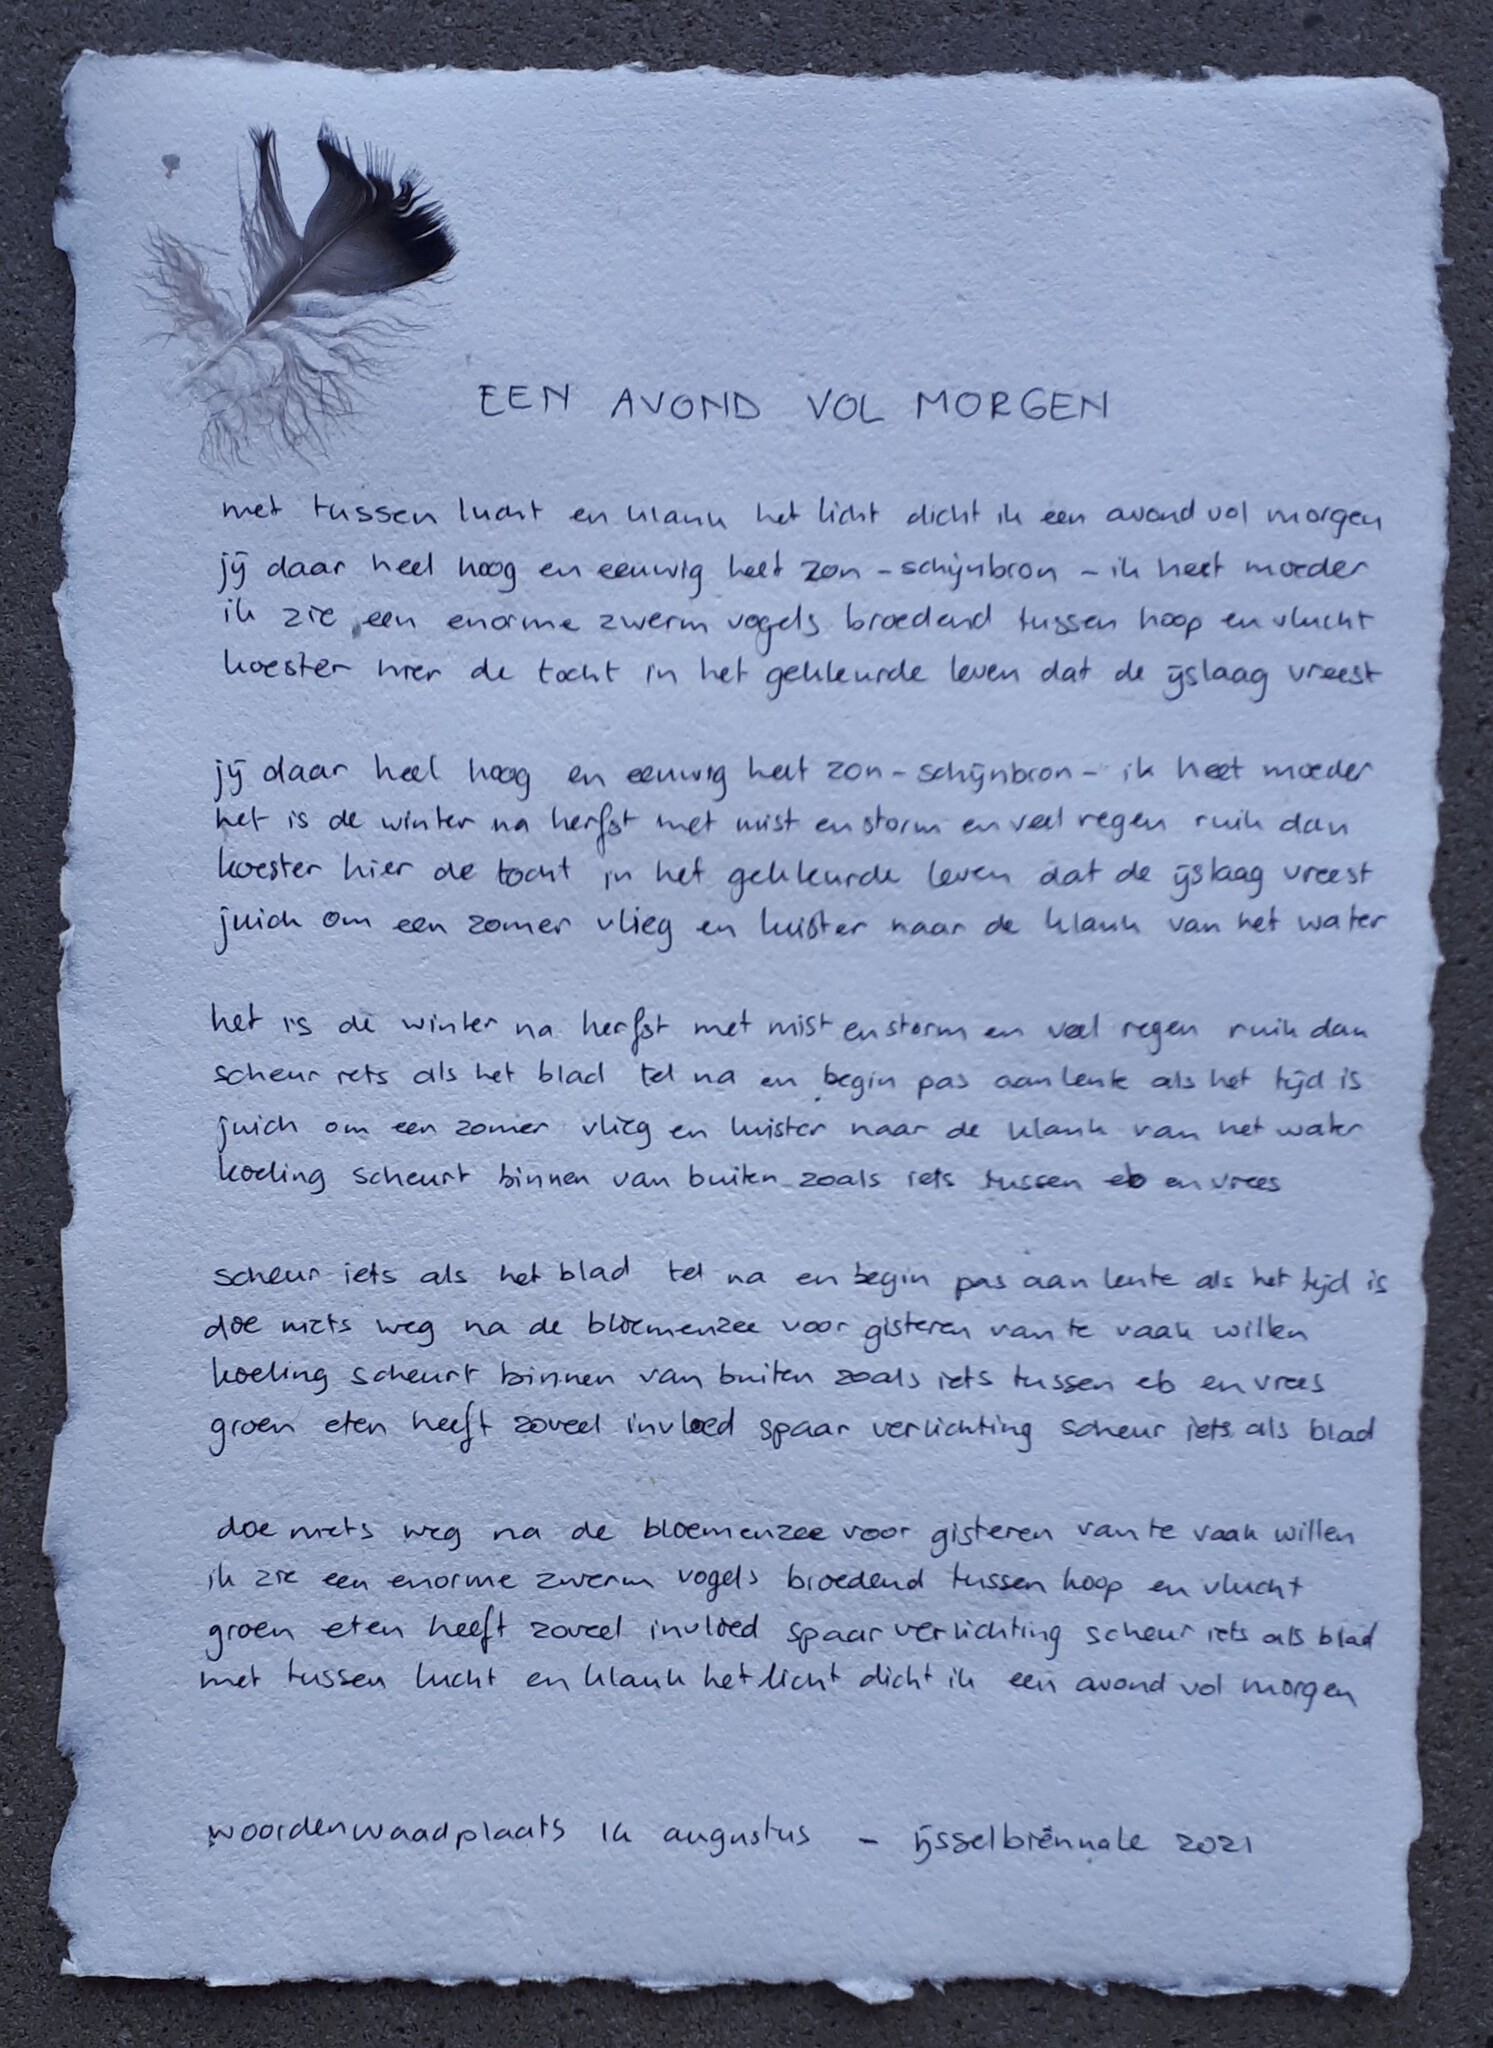 EEN AVOND VOL MORGEN
met tussen lucht en klank het licht dicht ik een avond vol morgen
jij daar heel hoog en eeuwig heet zon - schijnbron - ik heet moeder
ik zie een enorme zwerm vogels broedend tussen hoop en vlucht
koester hier de tocht in het gekleurde leven dat de ijslaag vreest
jij daar heel hoog en eeuwig heet zon - schijnbron - ik heet moeder
het is de winter na herfst met mist en storm en veel regen ruik dan
koester hier de tocht in het gekleurde leven dat de ijslaag vreest
juich om een zomer vlieg en luister naar de klank van het water
het is de winter na herfst met mist en storm en veel regen ruik dan
scheur iets als het blad tel na en begin pas aan lente als het tijd is
juich om een zomer vlieg en luister naar de klank van het water
koeling scheurt binnen van buiten zoals iets tussen eb en vrees
scheur iets als het blad tel na en begin pas aan lente als het tijd is
doe niets weg na de bloemenzee voor gisteren van te vaak willen
koeling scheurt binnen van buiten zoals iets tussen eb en vrees
groen eten heeft zoveel invloed spaar verlichting scheur iets als blad
doe niets weg na de bloemenzee voor gisteren van te vaak willen
ik zie een enorme zwerm vogels broedend tussen hoop en vlucht
groen eten heeft zoveel invloed spaar verlichting scheur iets als blad
met tussen lucht en klank het licht dicht ik een avond vol morgen
woordenwaadplaats augustus - ijsselbiënnale 2021